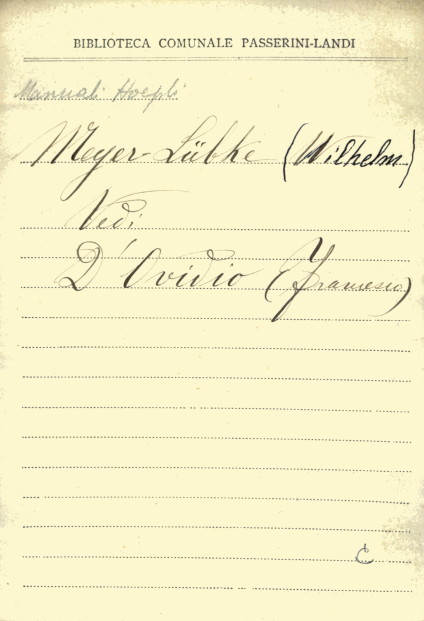 BIBLIOTECA COMUNALE PASSERINI-LANDI
Manuali Hoepli
Meyer-Lübke (Wilhelm)
Vedi
D'Ovidio (Francesco)
C